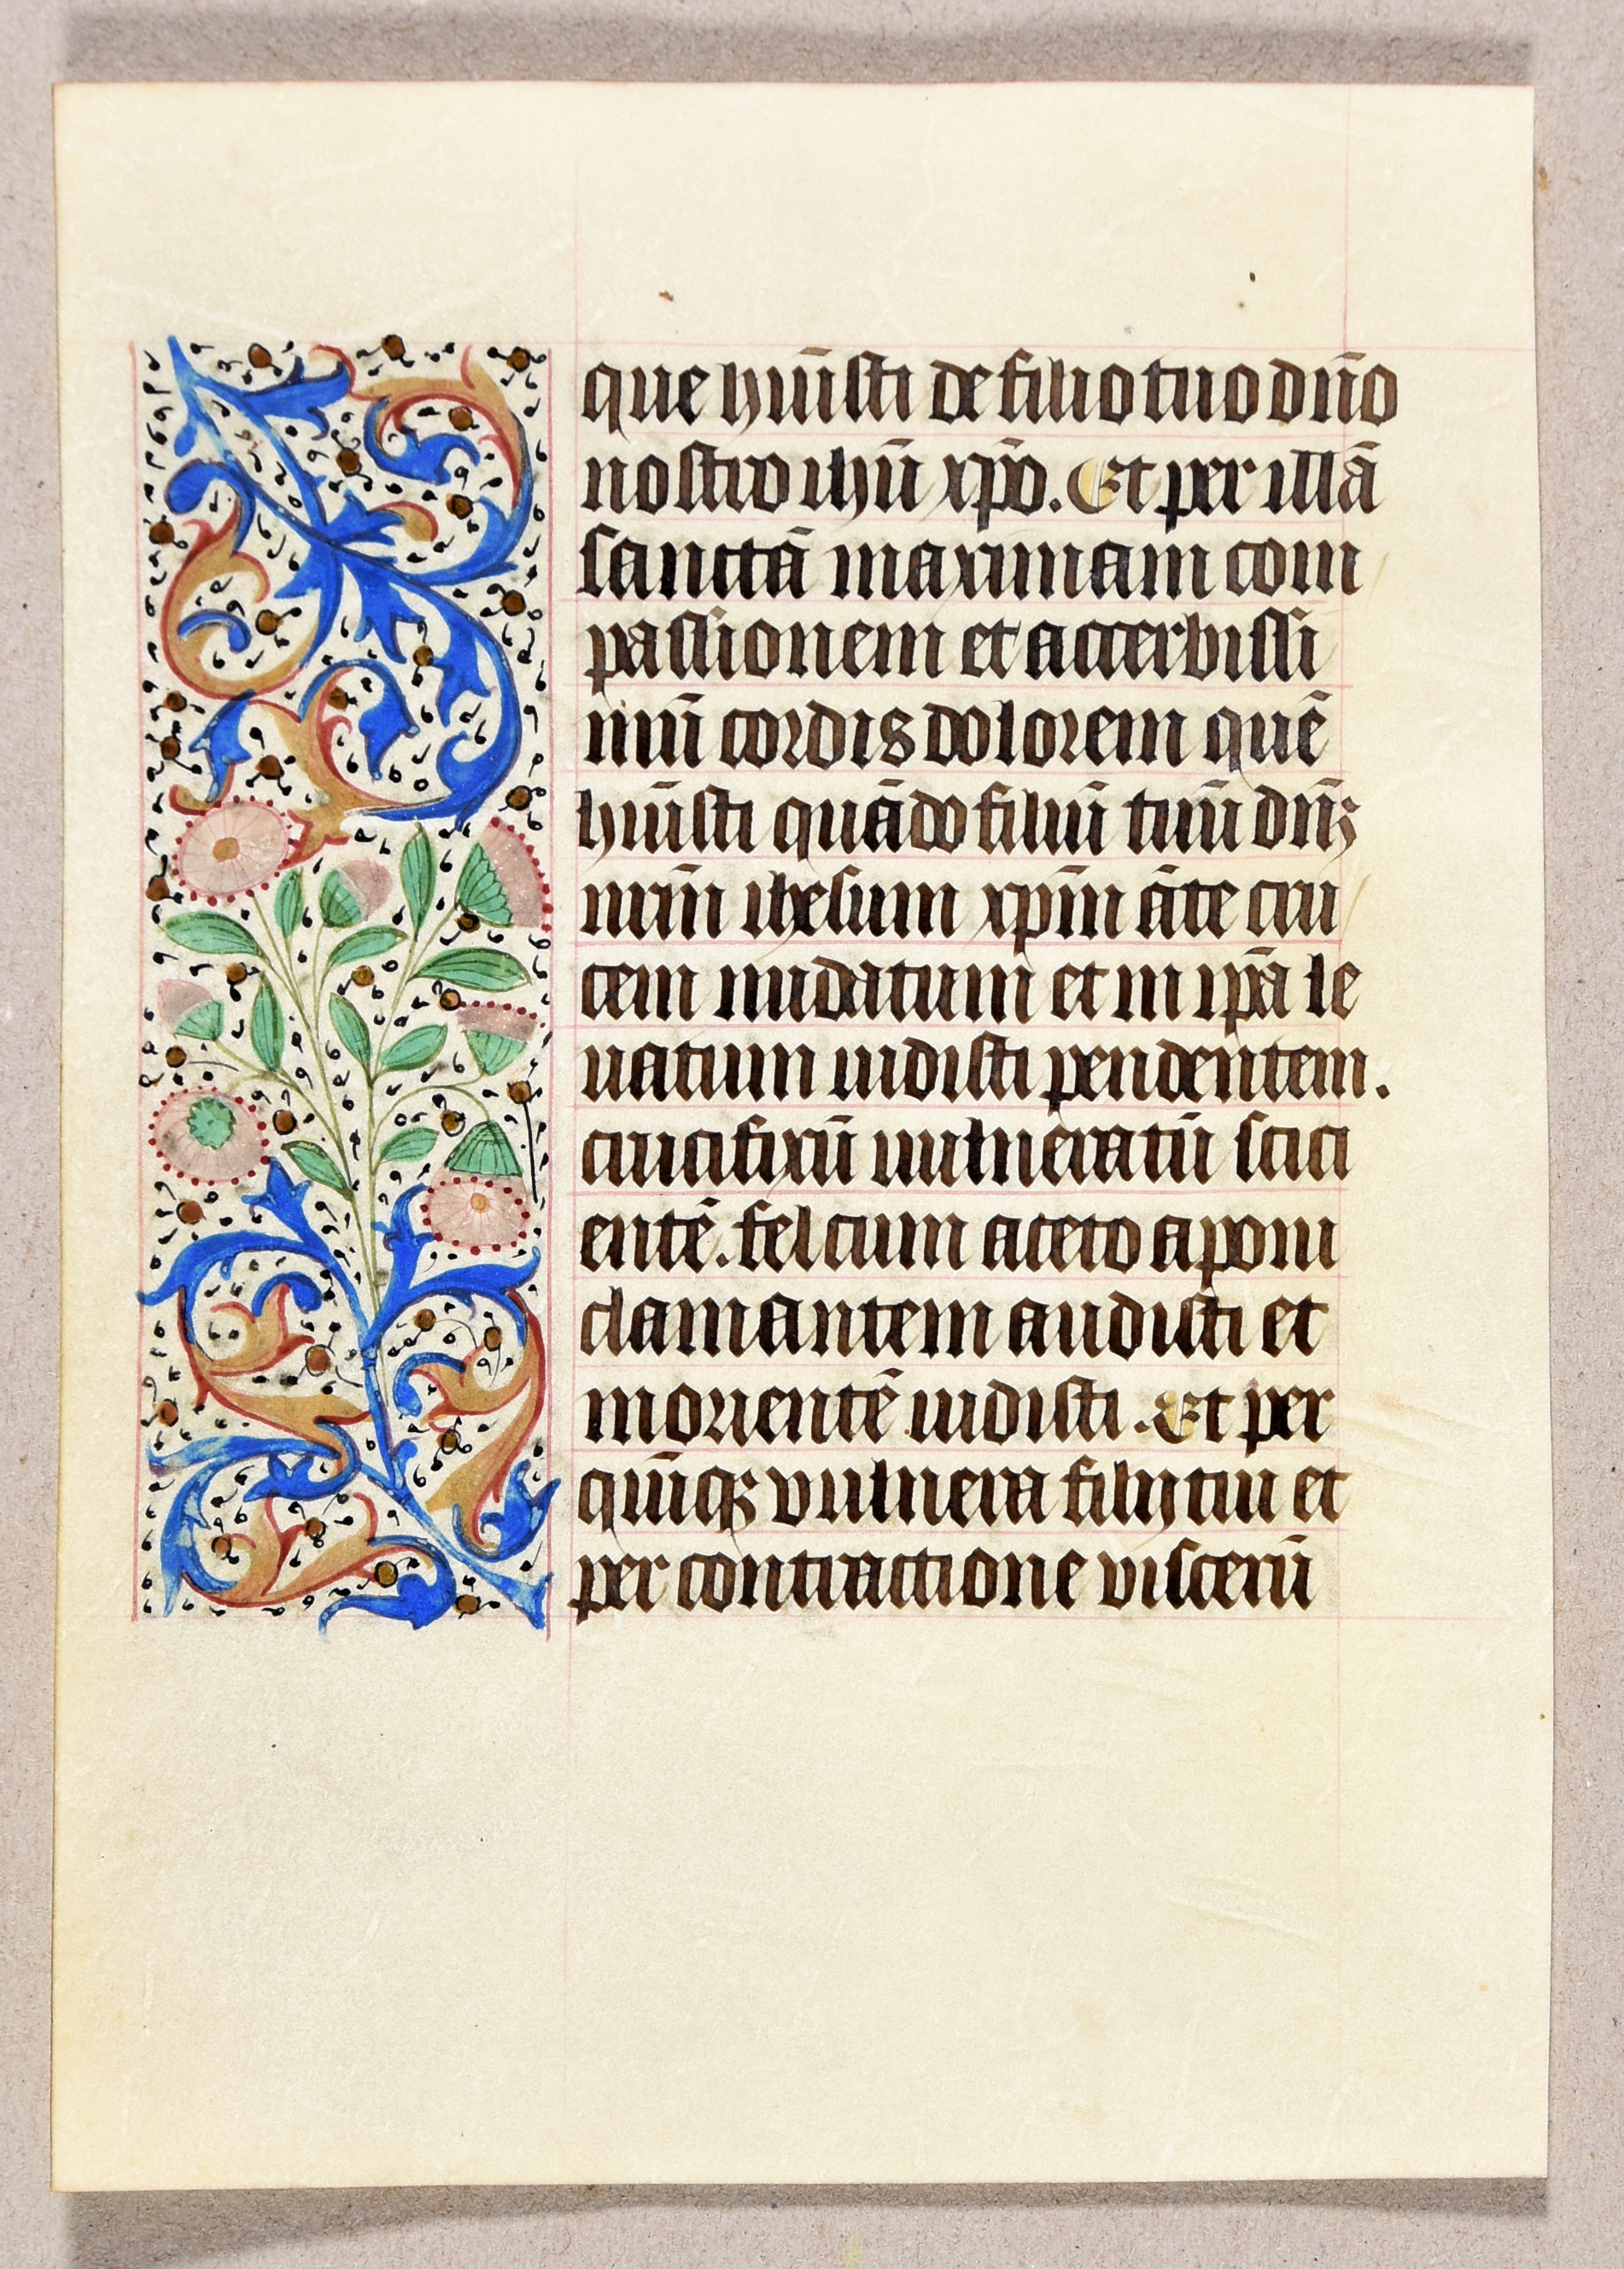 que hũisti de filio tuo dño
nostro ihũ xpõ. Et per illã
sanctã maximam com
passionem et accerbissi
mũ cordis dolorem quẽ
hũisti quãdo filiũ tuũ dñꝫ
nrm̃ ihesum xpm̃ ãte cru
cem nudatum et in ipã le
uatum uidisti pendentem.
crucifixũ uulneratũ scici
entẽ. fel cum aceto aponi
clamantem audisti et
morientẽ uidisti. Et per
quĩqꝫ vulnera filij tui et
per contractione viscerũ